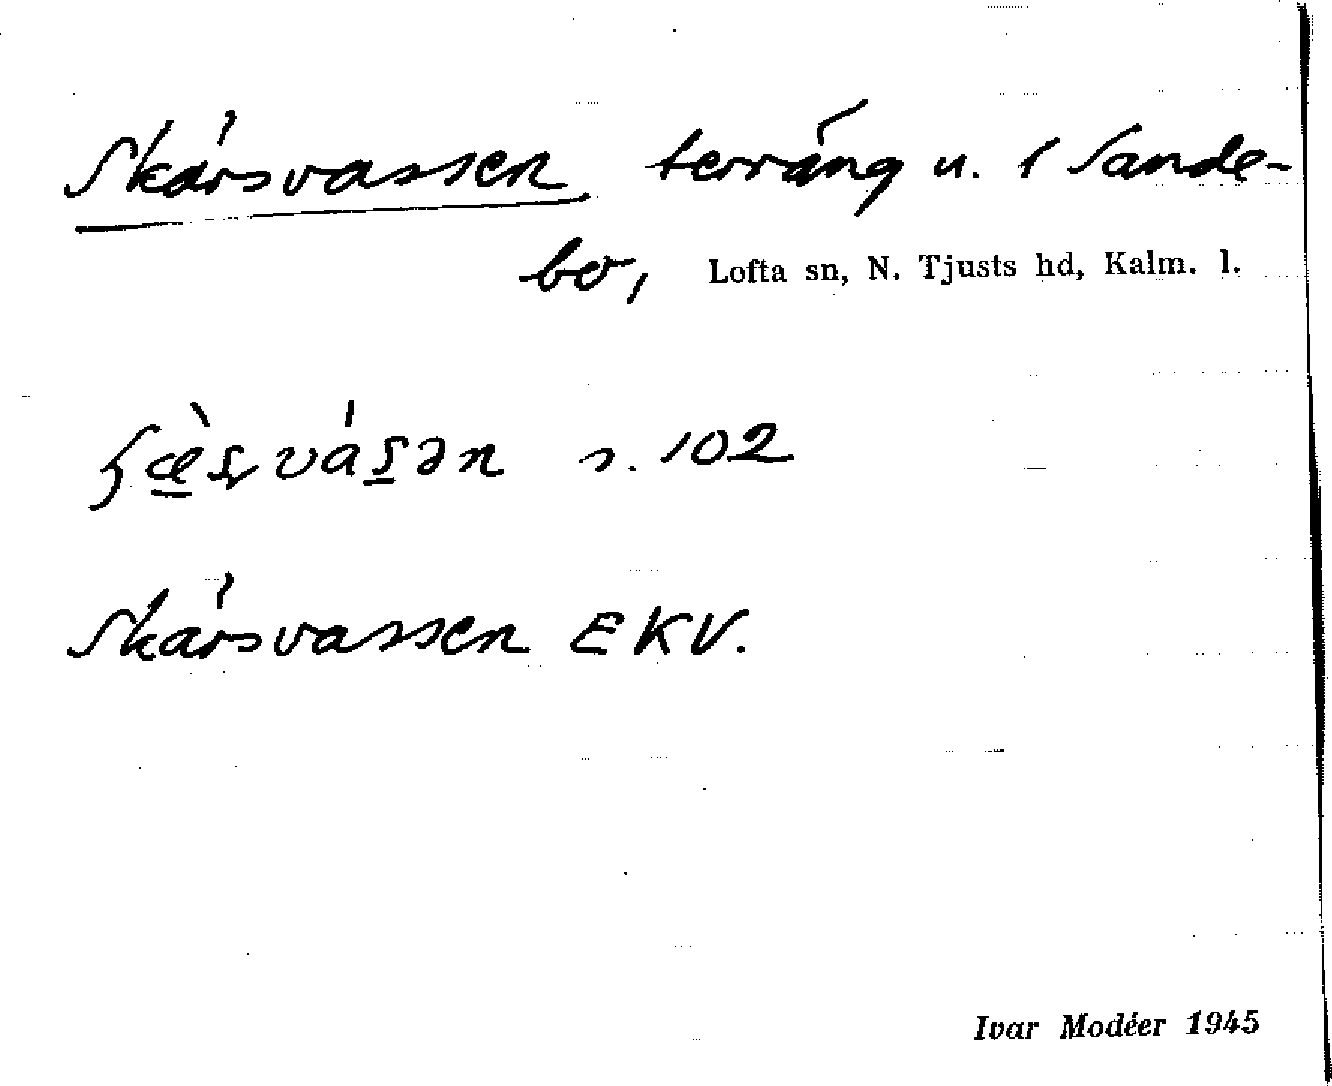 Skärsvassen, terräng u. 1 Sande-
bo, Lofta sn, N. Tjusts hd, Kalm. l.
s. 102
Skärsvassen EKV.
Ivar Modéer 1945